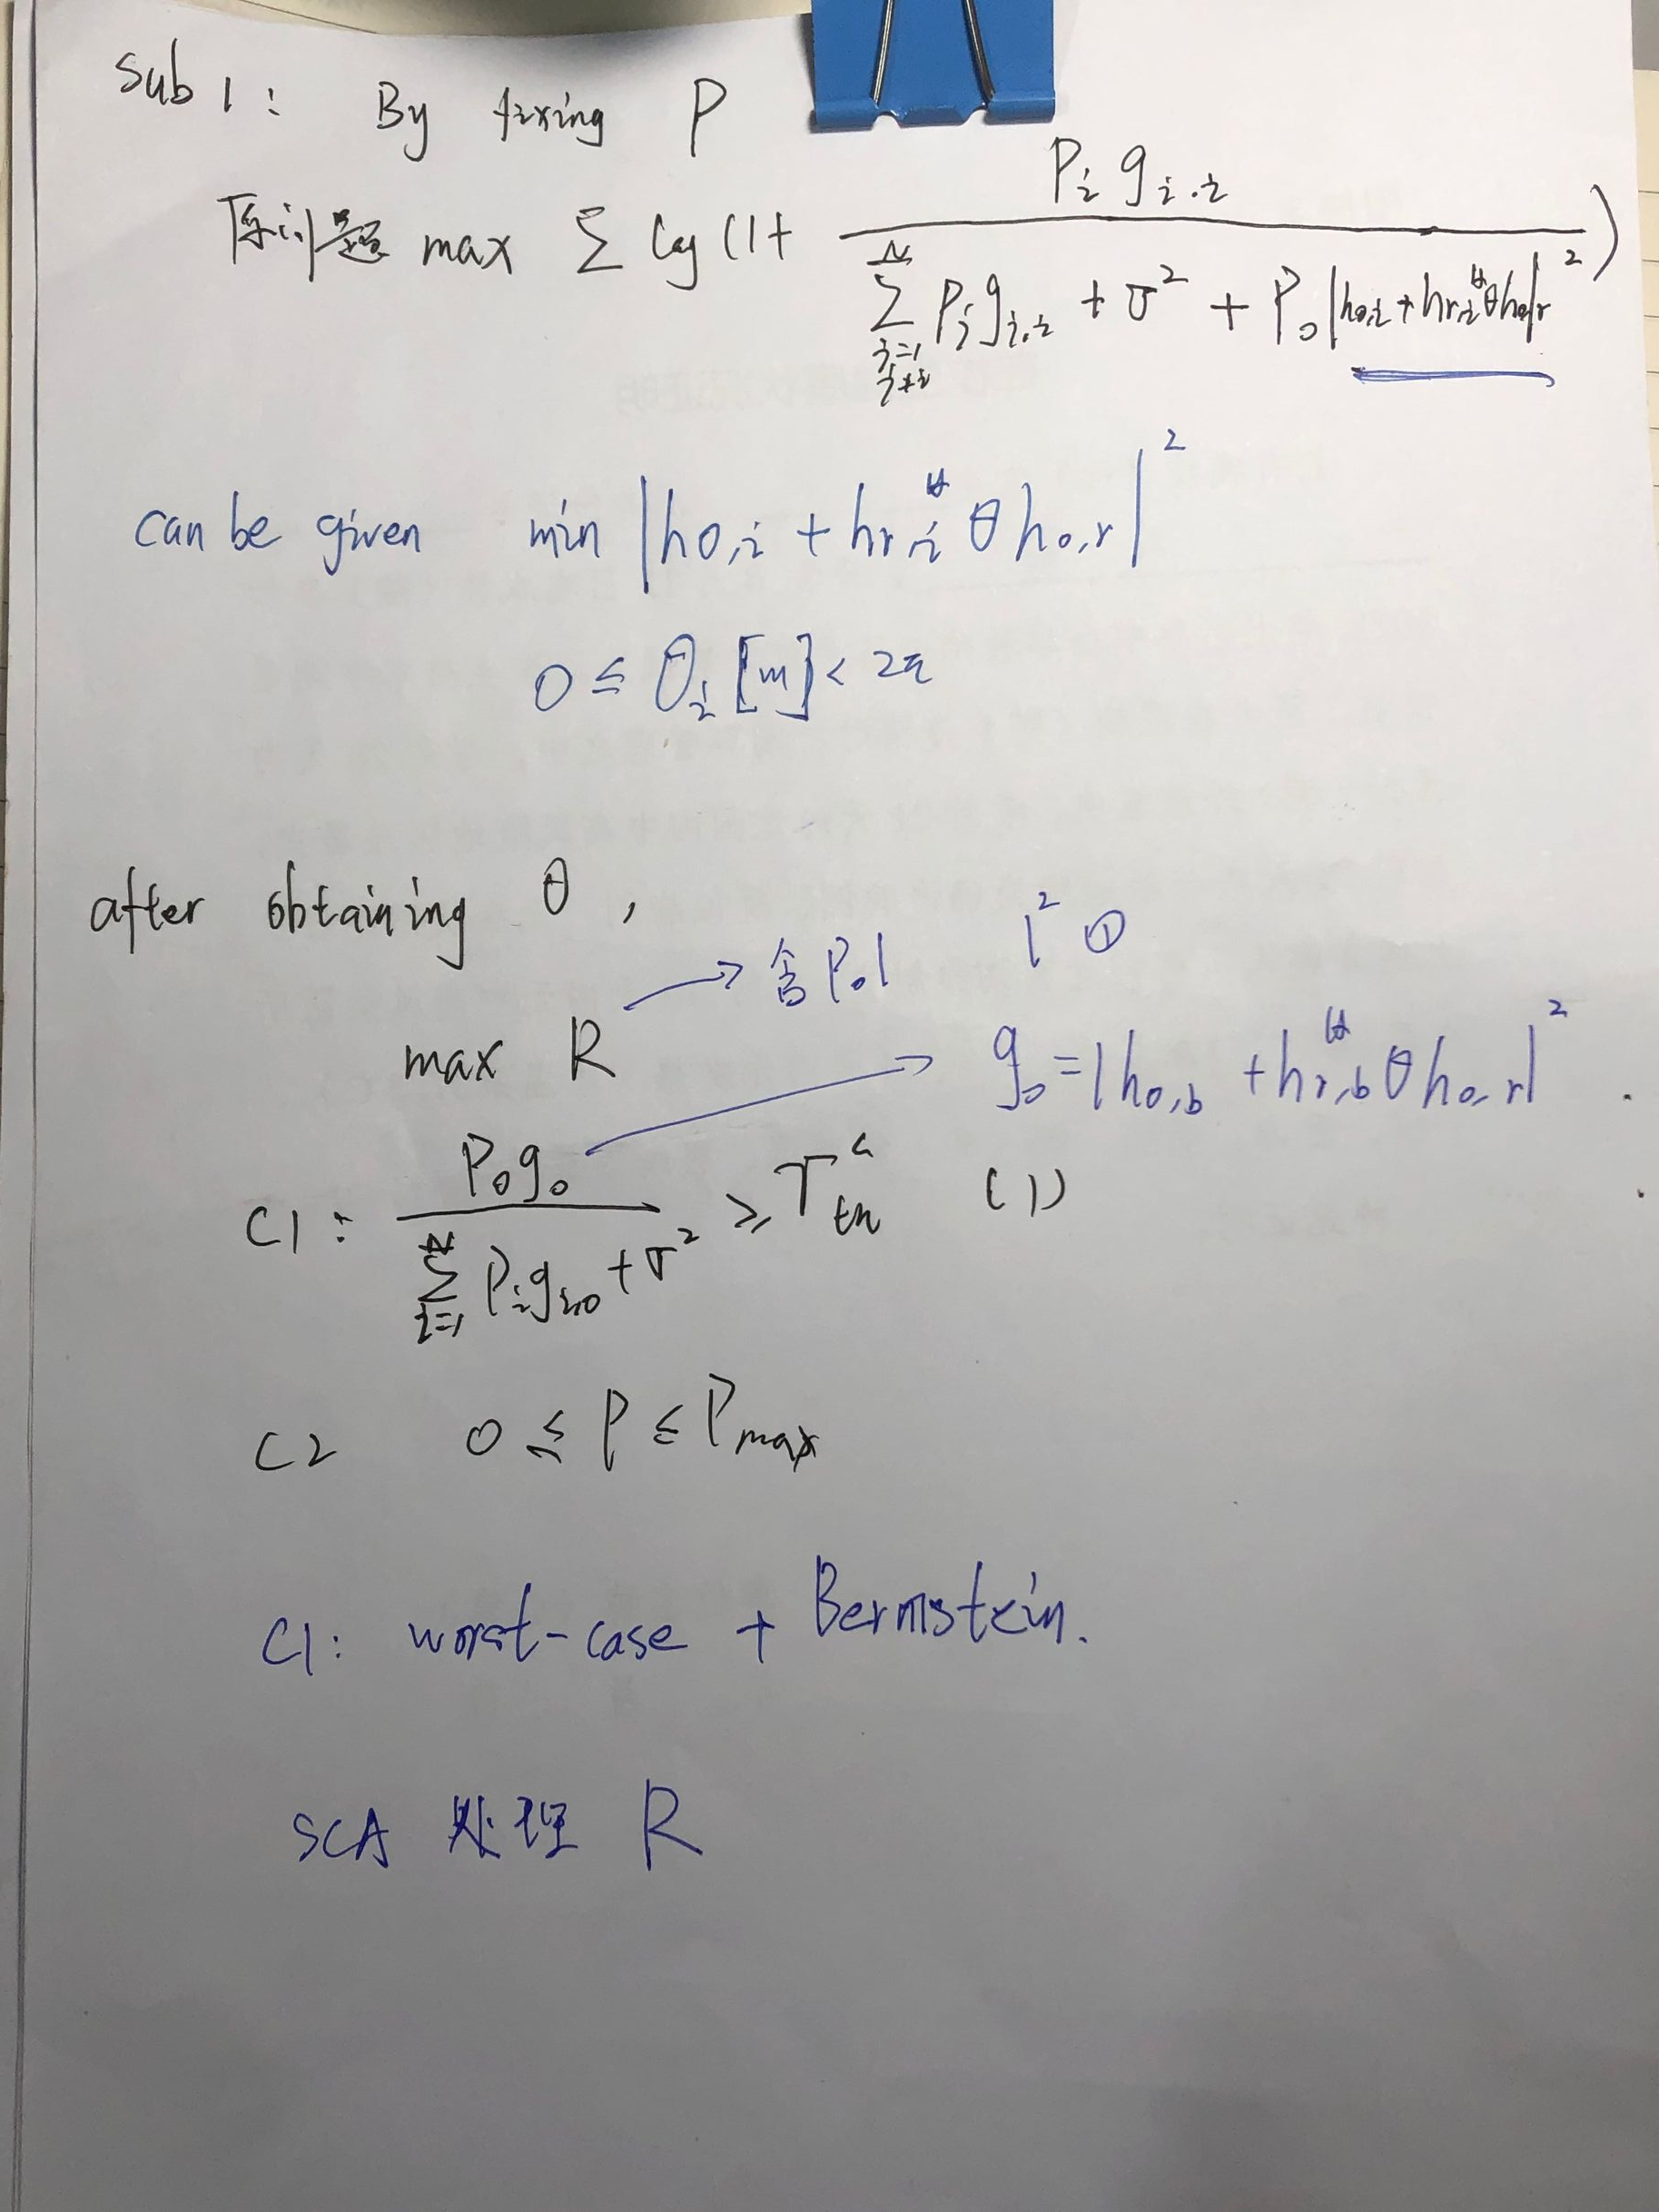 sub 1: By fixing P
原问题 max Σ log (1+ P_i g_{i,i} / (Σ_{j=1, j≠i}^N P_j g_{j,i} + σ² + P_0 |h_{0,i} + h_{r,i}^H θ h_{0,r}|²))
can be given min |h_{0,i} + h_{r,i}^H θ h_{0,r}|²
0 ≤ θ_i [m] < 2π
after obtaining θ,
max R → 含 P_0 | |² ①
g_0 = |h_{0,b} + h_{r,b}^H θ h_{0,r}|²
C1: P_0 g_0 / (Σ_{i=1}^N P_i g_{i,0} + σ²) ≥ (1)
C2 0 ≤ P ≤ P_max
C1: worst-case + Bernstein.
SCA 处理 R